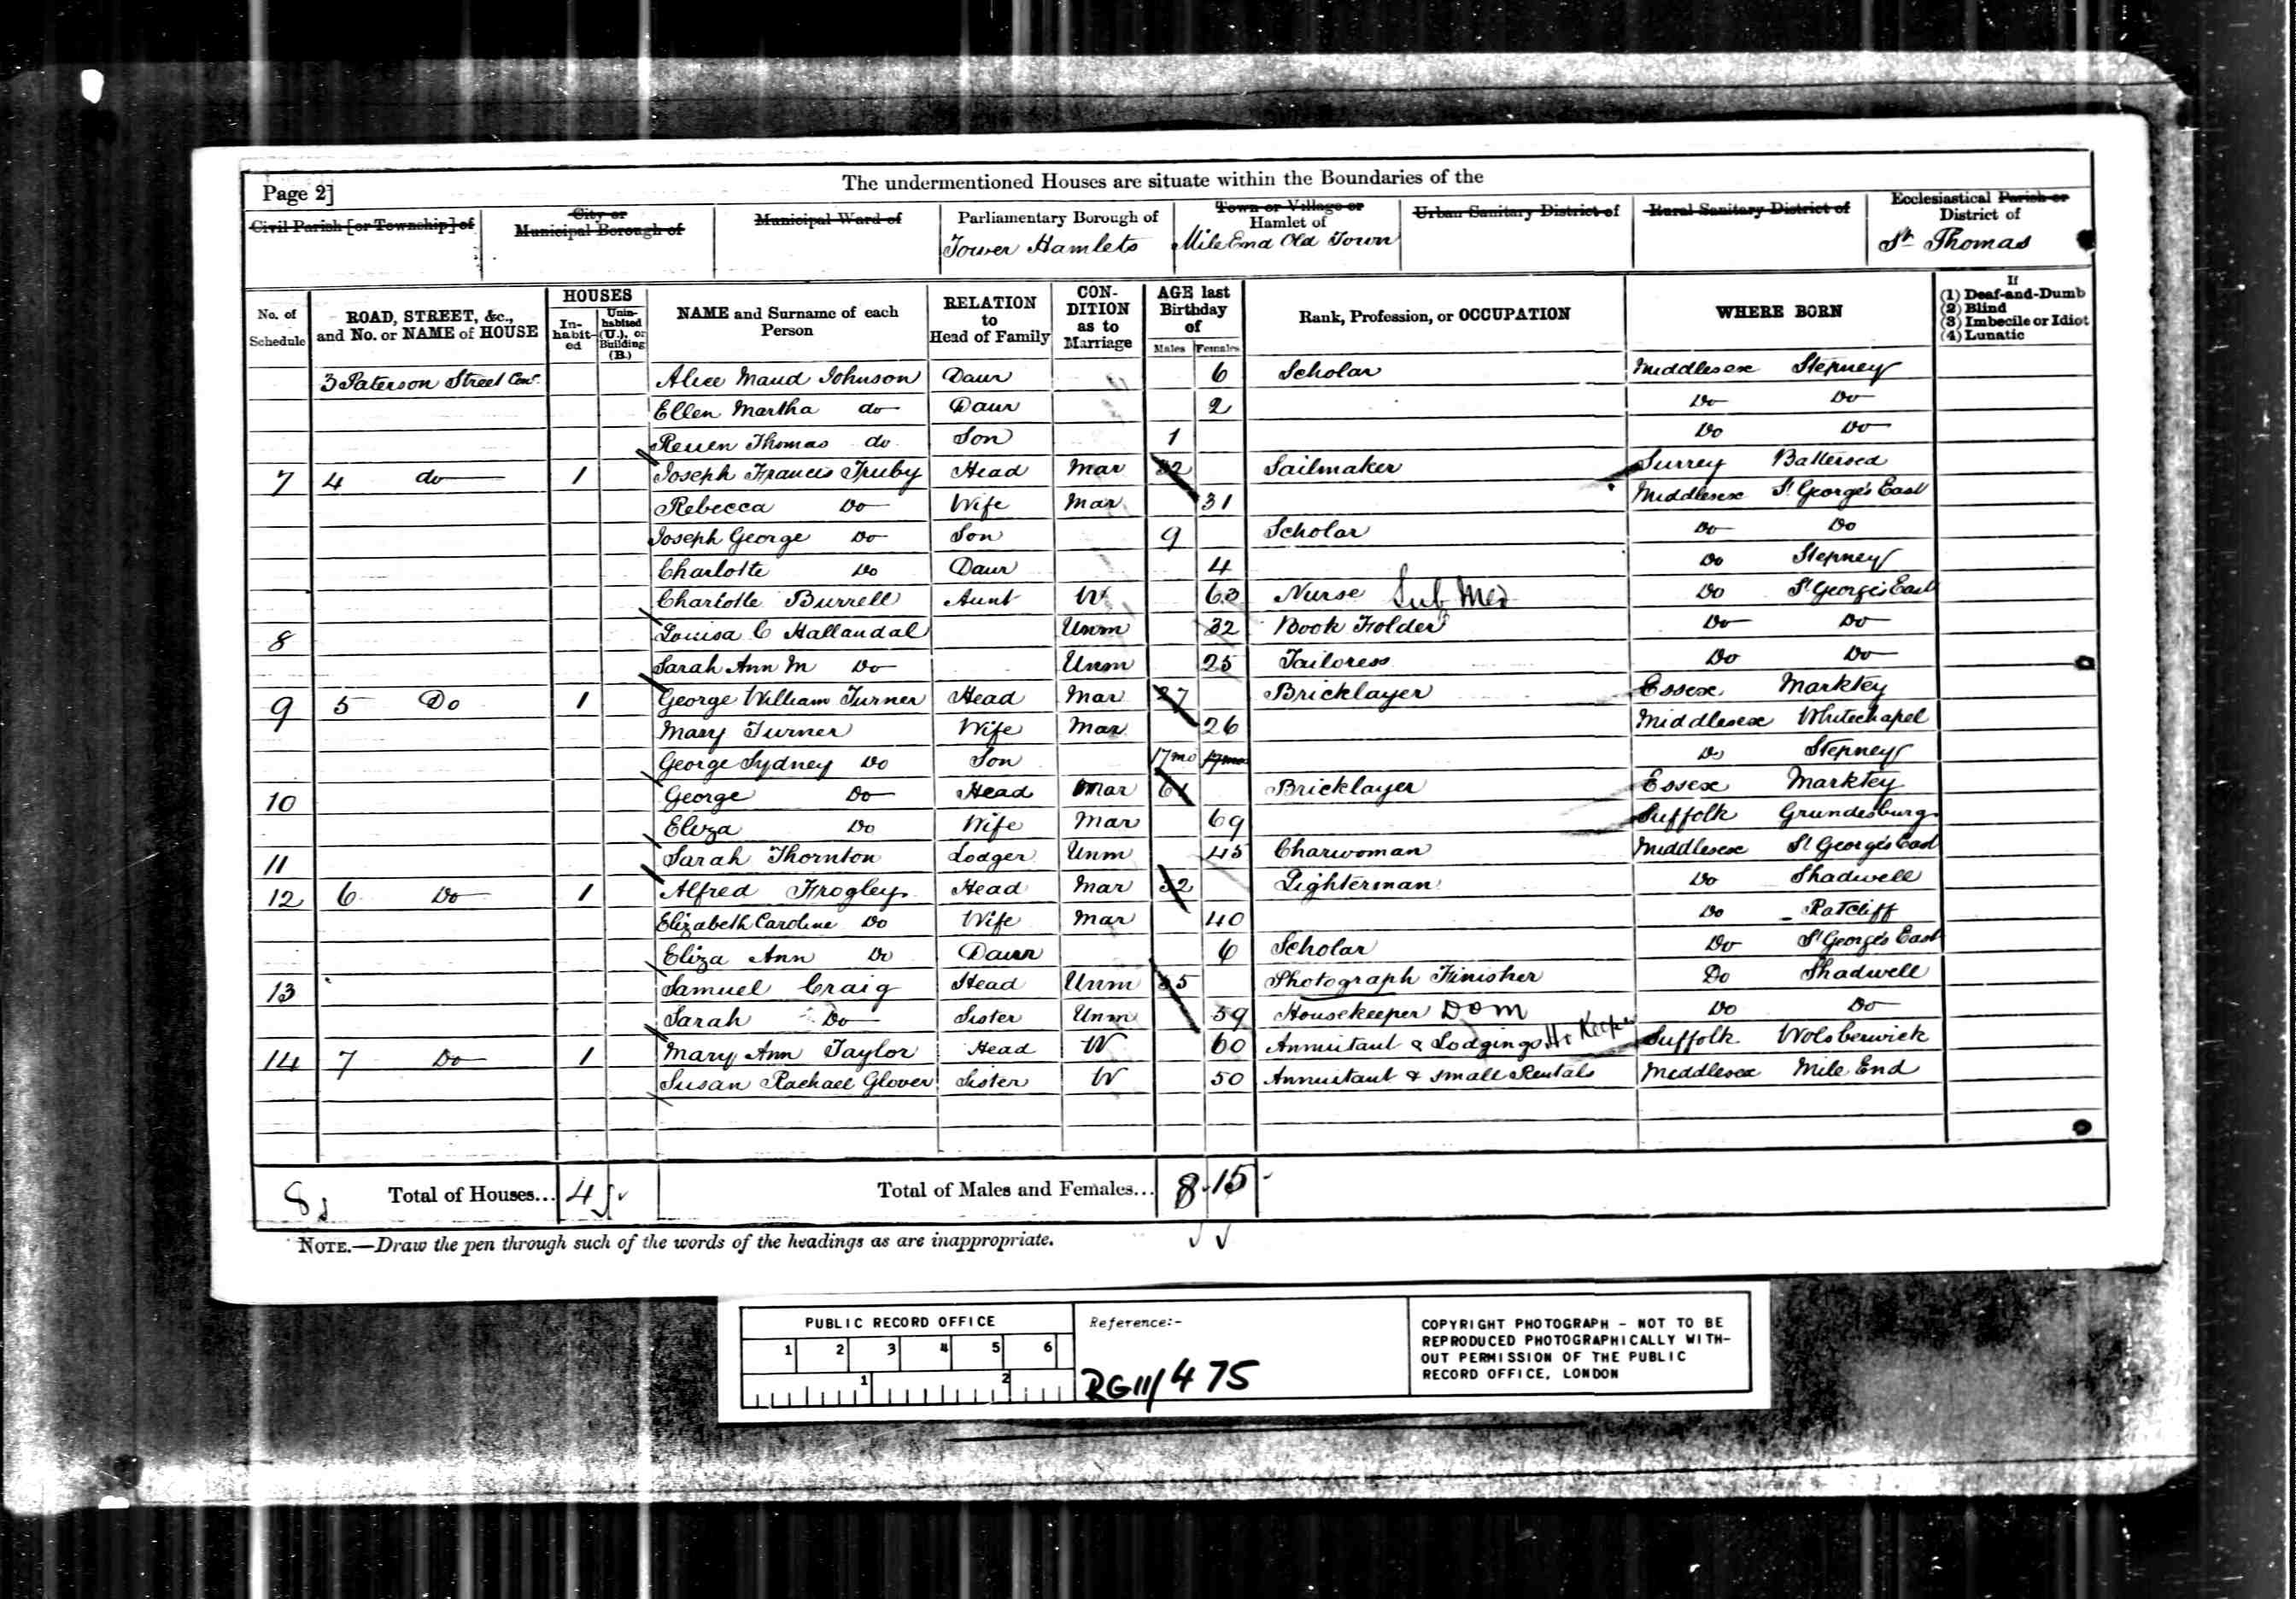 Page 2] The undermentioned Houses are situate within the Boundaries of the
Civil Parish [or Township] of City or Municipal Borough of Municipal Ward of Parliamentary Borough of Tower Hamlets Town or Village or Hamlet of Mile End Old Town Urban Sanitary District of Rural Sanitary District of Ecclesiastical Parish or District of St Thomas
No. of Schedule ROAD, STREET, &c., and No. or NAME of HOUSE HOUSES In-habit-ed Unin-habited (U.), or Building (B.) NAME and Surname of each Person RELATION to Head of Family CON-DITION as to Marriage AGE last Birthday of Males Females Rank, Profession, or OCCUPATION WHERE BORN If (1) Deaf-and-Dumb (2) Blind (3) Imbecile or Idiot (4) Lunatic
3 Paterson Street Con Alice Maud Johnson Daur 6 Scholar Middlesex Stepney
Ellen Martha do Daur 2 Do Do
Reuen Thomas do Son 1 Do Do
7 4 do 1 Joseph Francis Truby Head Mar 32 Sailmaker Surrey Battersea
Rebecca Do Wife Mar 31 Middlesex St George's East
Joseph George Do Son 9 Scholar Do Do
Charlotte Do Daur 4 Do Stepney
Charlotte Burrell Aunt W 63 Nurse Sub Med Do St George's East
8 Louisa C Hallandal Unm 32 Book Folder Do Do
Sarah Ann M Do Unm 25 Tailoress Do Do
9 5 Do 1 George William Turner Head Mar 27 Bricklayer Essex Marktey
Mary Turner Wife Mar 26 Middlesex Whitechapel
George Sydney Do Son 17mo 17mo Do Stepney
10 George Do Head Mar 61 Bricklayer Essex Marktey
Eliza Do Wife Mar 69 Suffolk Grundesburg
11 Sarah Thornton Lodger Unm 45 Charwoman Middlesex St George's East
12 6 Do 1 Alfred Frogley Head Mar 32 Lighterman Do Shadwell
Elizabeth Caroline Do Wife Mar 40 Do Ratcliff
Eliza Ann Do Daur 6 Scholar Do St George's East
13 Samuel Craig Head Unm 35 Photograph Finisher Do Shadwell
Sarah Do Sister Unm 59 Housekeeper DOM Do Do
14 7 Do 1 Mary Ann Taylor Head W 60 Annuitant & Lodgings Ho Keeper Suffolk Wolsberwick
Susan Rachael Glover Sister W 50 Annuitant & small Rentals Middlesex Mile End
8 Total of Houses... 4 Total of Males and Females... 8 15
NOTE.—Draw the pen through such of the words of the headings as are inappropriate.
PUBLIC RECORD OFFICE
1 2 3 4 5 6
1 2
Reference:-
RG11/475
COPYRIGHT PHOTOGRAPH - NOT TO BE
REPRODUCED PHOTOGRAPHICALLY WITH-
OUT PERMISSION OF THE PUBLIC
RECORD OFFICE, LONDON